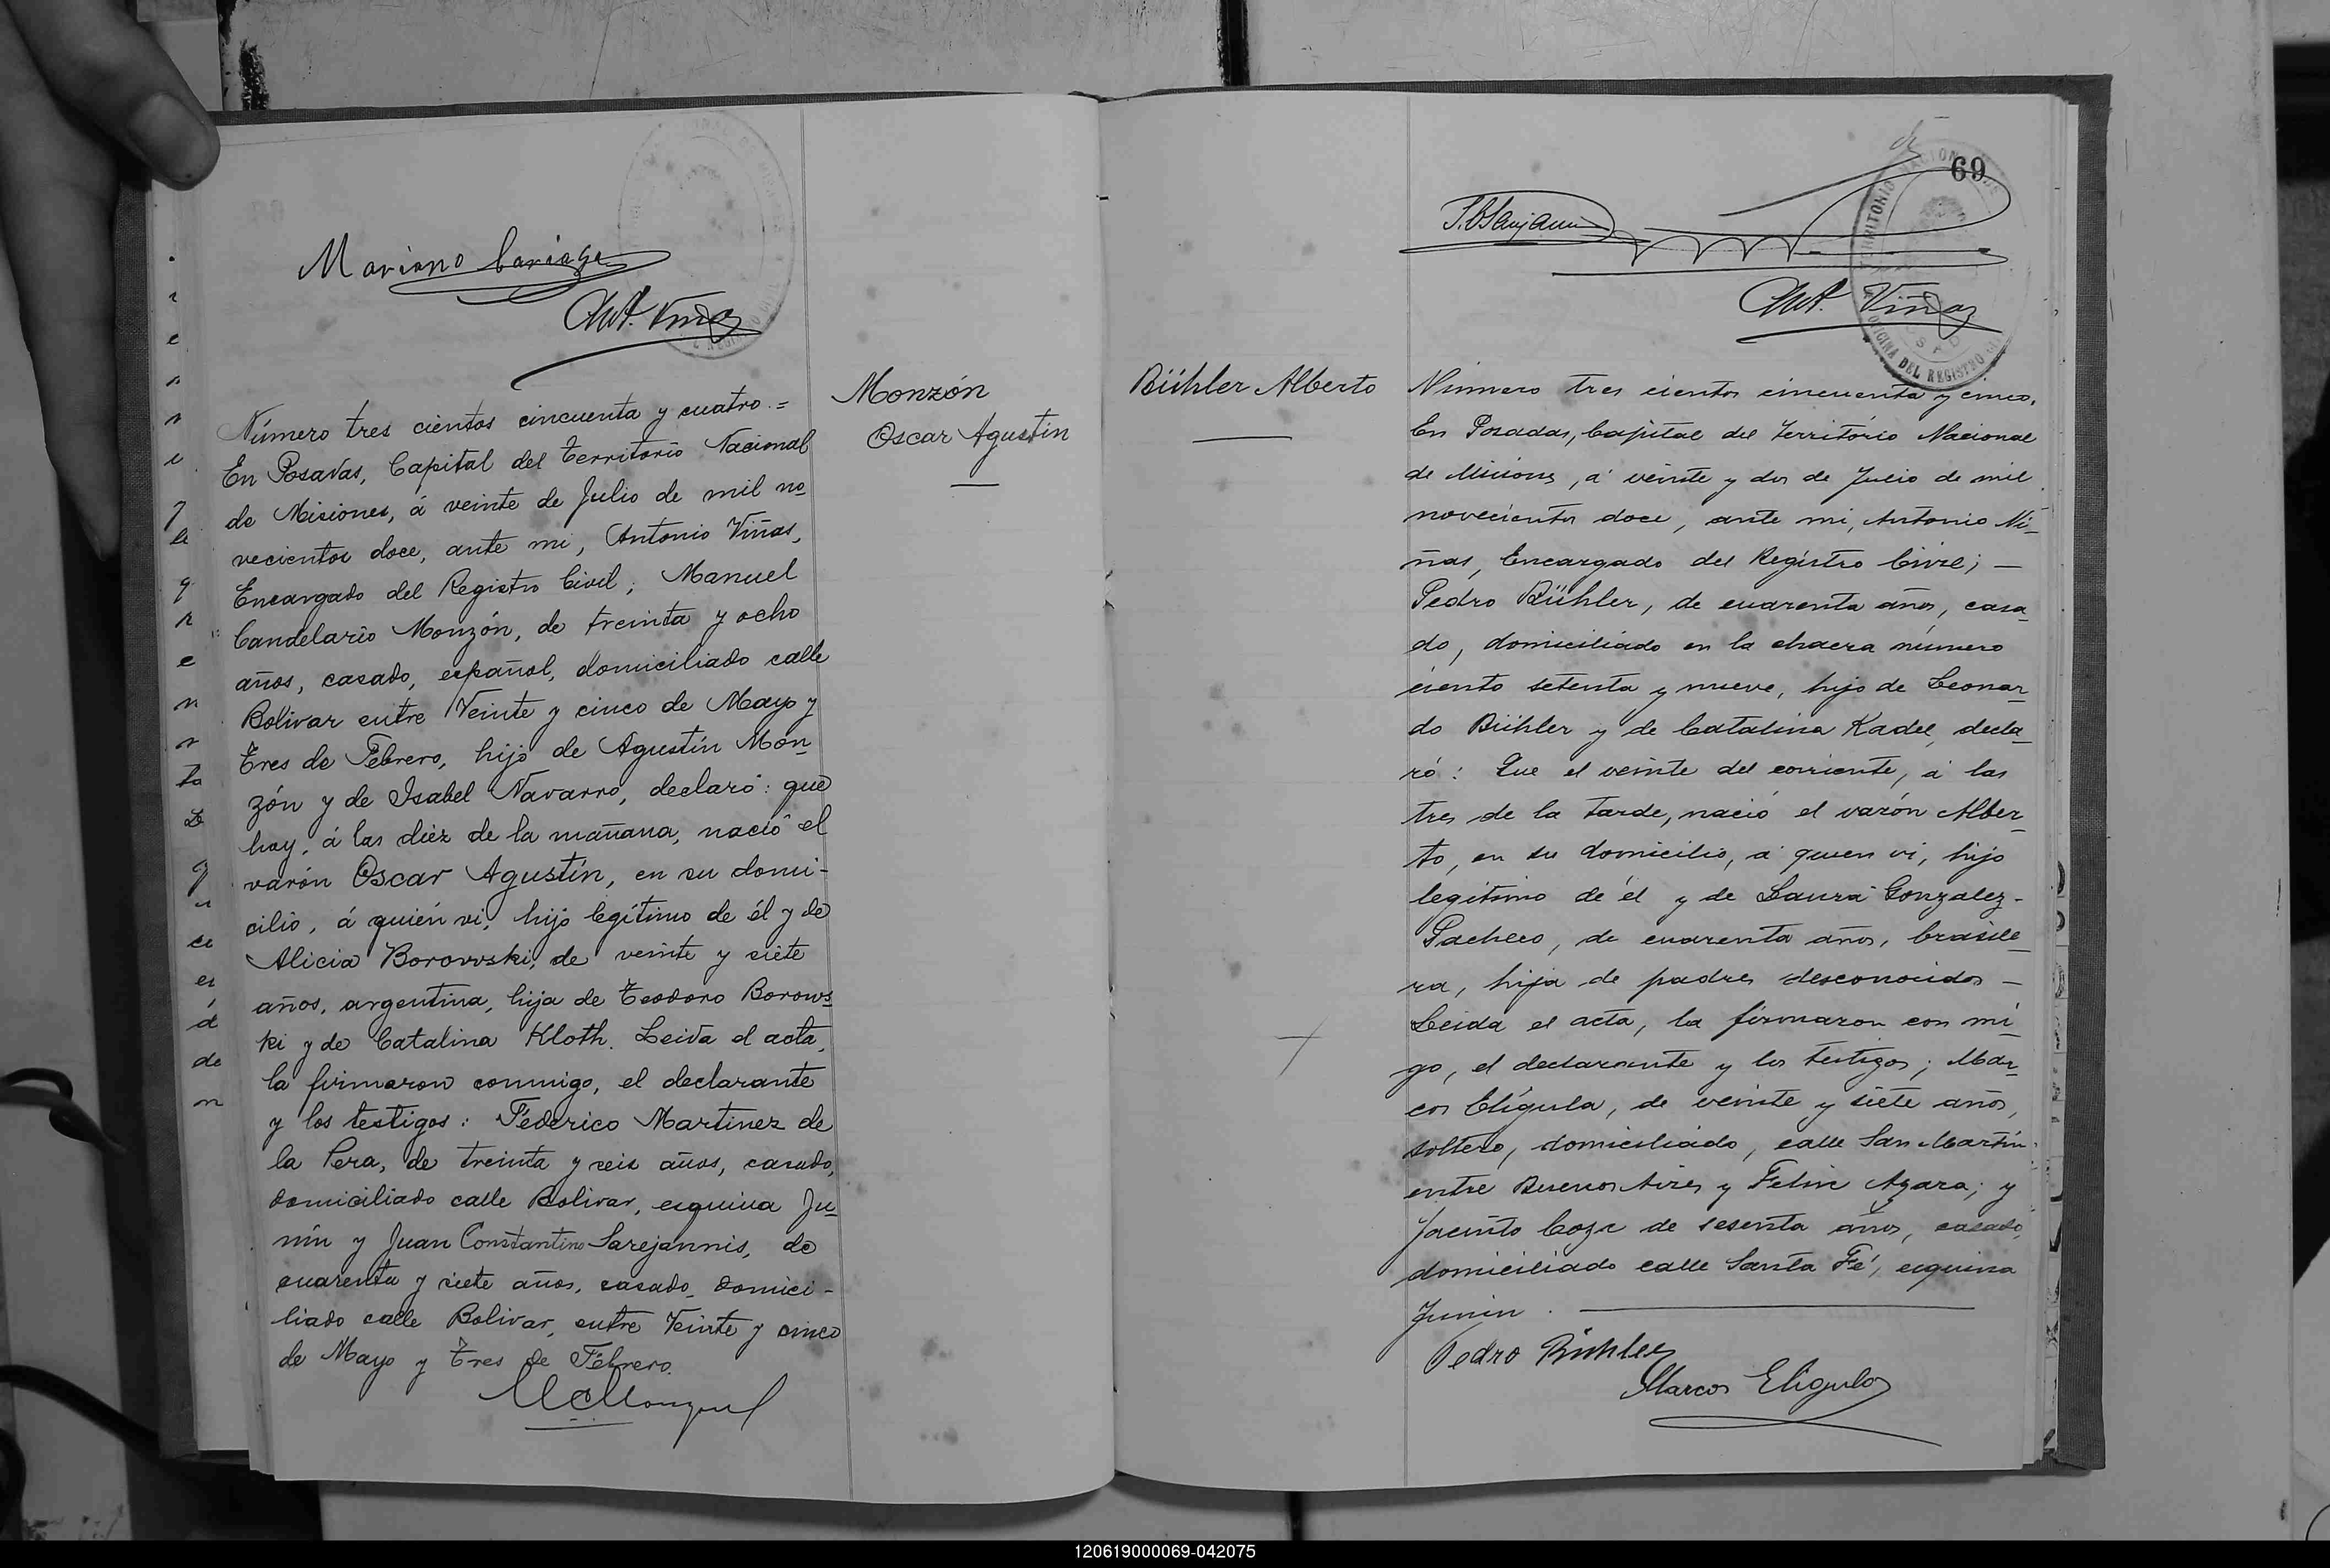 Mariano Cariaga
Ant. Viñas
Monzón
Oscar Agustín
Número tres cientos cincuenta y cuatro.=
En Posadas, Capital del Territorio Nacional
de Misiones, á veinte de Julio de mil no-
vecientos doce, ante mi, Antonio Viñas,
Encargado del Registro Civil; Manuel
Candelario Monzón, de treinta y ocho
años, casado, español, domiciliado calle
Bolivar entre Veinte y cinco de Mayo y
Tres de Febrero, hijo de Agustín Mon-
zón y de Isabel Navarro, declaró: que
hoy, á las diez de la mañana, nació el
varón Oscar Agustín, en su domi-
cilio, á quién vi, hijo legítimo de él y de
Alicia Borowski, de veinte y siete
años, argentina, hija de Teodoro Borows-
ki y de Catalina Kloth. Leida el acta,
la firmaron conmigo, el declarante
y los testigos: Féderico Martinez de
la Pera, de treinta y seis años, casado,
domiciliado calle Bolivar, esquina Ju-
nín y Juan Constantino Sarejannis, de
cuarenta y siete años, casado, domici-
liado calle Bolivar, entre Veinte y cinco
de Mayo y Tres de Febrero.
69
Ant. Viñas
OFICINA DEL REGISTRO
Bühler Alberto
Número tres cientos cincuenta y cinco.
En Posadas, Capital del Territorio Nacional
de Misiones, á veinte y dos de Julio de mil
novecientos doce, ante mi, Antonio Vi-
ñas, Encargado del Registro Civil; —
Pedro Bühler, de cuarenta años, casa-
do, domiciliado en la chacra número
ciento setenta y nueve, hijo de Leonar-
do Bühler y de Catalina Kadel, decla-
ró: Que el veinte del corriente, á las
tres de la tarde, nació el varón Alber-
to, en su domicilio, á quien vi, hijo
legítimo de él y de Laura Gonzalez-
Pacheco, de cuarenta años, brasile-
ra, hija de padres desconocidos —
Leida el acta, la firmaron con mi-
go, el declarante y los testigos; Mar-
cos Elígula, de veinte y siete años,
soltero, domiciliado, calle San Martín
entre Buenos Aires y Felix Azara; y
Jacinto de sesenta años, casado,
domiciliado calle Santa Fé, esquina
Junin.
Pedro Bühler
Marcos Eligula
120619000069-042075